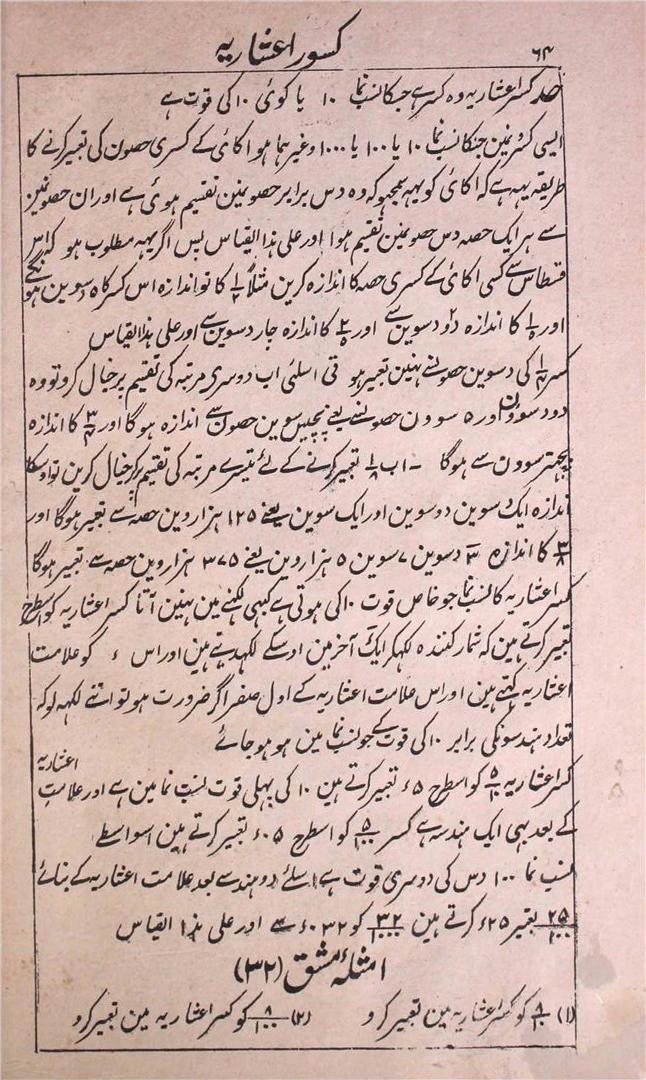 ۶۴ کسور اعشاریہ
حد کسر اعشاریہ وہ کسر ہے جسکا نسب نما ۱۰ یا کوئی ۱۰ کی قوت ہے
ایسی کسرنمین جنکا نسب نما ۱۰ یا ۱۰۰ یا ۱۰۰۰ وغیرہما ہو اکائی کے کسری حصون کی تعبیر کرنے کا
طریقہ یہہ ہے کہ اکائی کو یہہ سمجہو کہ وہ دس برابر حصونمین تقسیم ہوئی ہے اور ان حصونمین
سے ہر ایک حصہ دس حصونمین تقسیم ہوا اور علی ہذا القیاس پس اگر یہہ مطلوب ہو کہ اس
قسطاس سے کسی اکائی کے کسری حصہ کا اندازہ کرین مثلاً ۱/۲ کا تو اندازہ اس کسر کا ۵ دسوین ہونگے
اور ۱/۵ کا اندازہ دو ۲ دسوین سے اور ۲/۵ کا اندازہ چار دسوین سے اور علی ہذا القیاس
کسر ۱/۴ کی دسوین حصونسے نہین تعبیر ہو تی اسلئی اب دوسری مرتبہ کی تقسیم پر خیال کرو تو وہ
دو دسوون اور ۵ سوون حصونسے یعنے پچیس سوین حصون سے اندازہ ہوگا اور ۳/۴ کا اندازہ
پچہتر سوون سے ہوگا ۔ اب ۱/۸ تعبیر کرنے کے لئے تیسرے مرتبہ کی تقسیم پر خیال کرین تو اوسکا
اندازہ ایک دسوین دو سوین اور ایک سوین یعنے ۱۲۵ ہزاروین حصہ سے تعبیر ہوگا اور
۳/۸ کا اندازہ ۳ دسوین ۷ سوین ۵ ہزاروین یعنے ۳۷۵ ہزاروین حصہ سے تعبیر ہوگا
کسر اعشاریہ کا نسب نما جو خاص قوت ۱۰ کی ہوتی ہے کبہی لکہنے مین نہین آتا کسر اعشاریہ کو اسطرح
تعبیر کرتے ہین کہ شمار کنندہ لکہکر ایک ء آخر مین اوسکے لکہدیتے ہین اور اس ء کو علامت
اعشاریہ کہتے ہین اور اس علامت اعشاریہ کے اول صفر اگر ضرورت ہو تو اتنے لکہہ لو کہ
تعداد ہندسونکی برابر ۱۰ کی قوت کے جو نسب نما مین ہو ہو جائے
کسر اعشاریہ ۵/۱۰ کو اسطرح ۵ء تعبیر کرتے ہین ۱۰ کی پہلی قوت نسب نما مین ہے اور علامت اعشاریہ
کے بعد یہی ایک ہندسہ ہے کسر ۵/۱۰۰ کو اسطرح ۰۵ء تعبیر کرتے ہین اسواسطے
نسب نما ۱۰۰ دس کی دوسری قوت ہے اسلئے دو ہندسے بعد علامت اعشاریہ کے بنائے
۲۵/۱۰۰ تعبیر ۲۵ء کرتے ہین ۳۲/۱۰۰۰ کو ۰۳۲ء سے اور علی ہذا القیاس
امثلۂ مشق (۳۲)
(۱) ۸/۱۰ کو کسر اعشاریہ مین تعبیر کرو (۲) ۸/۱۰۰ کو کسر اعشاریہ مین تعبیر کرو